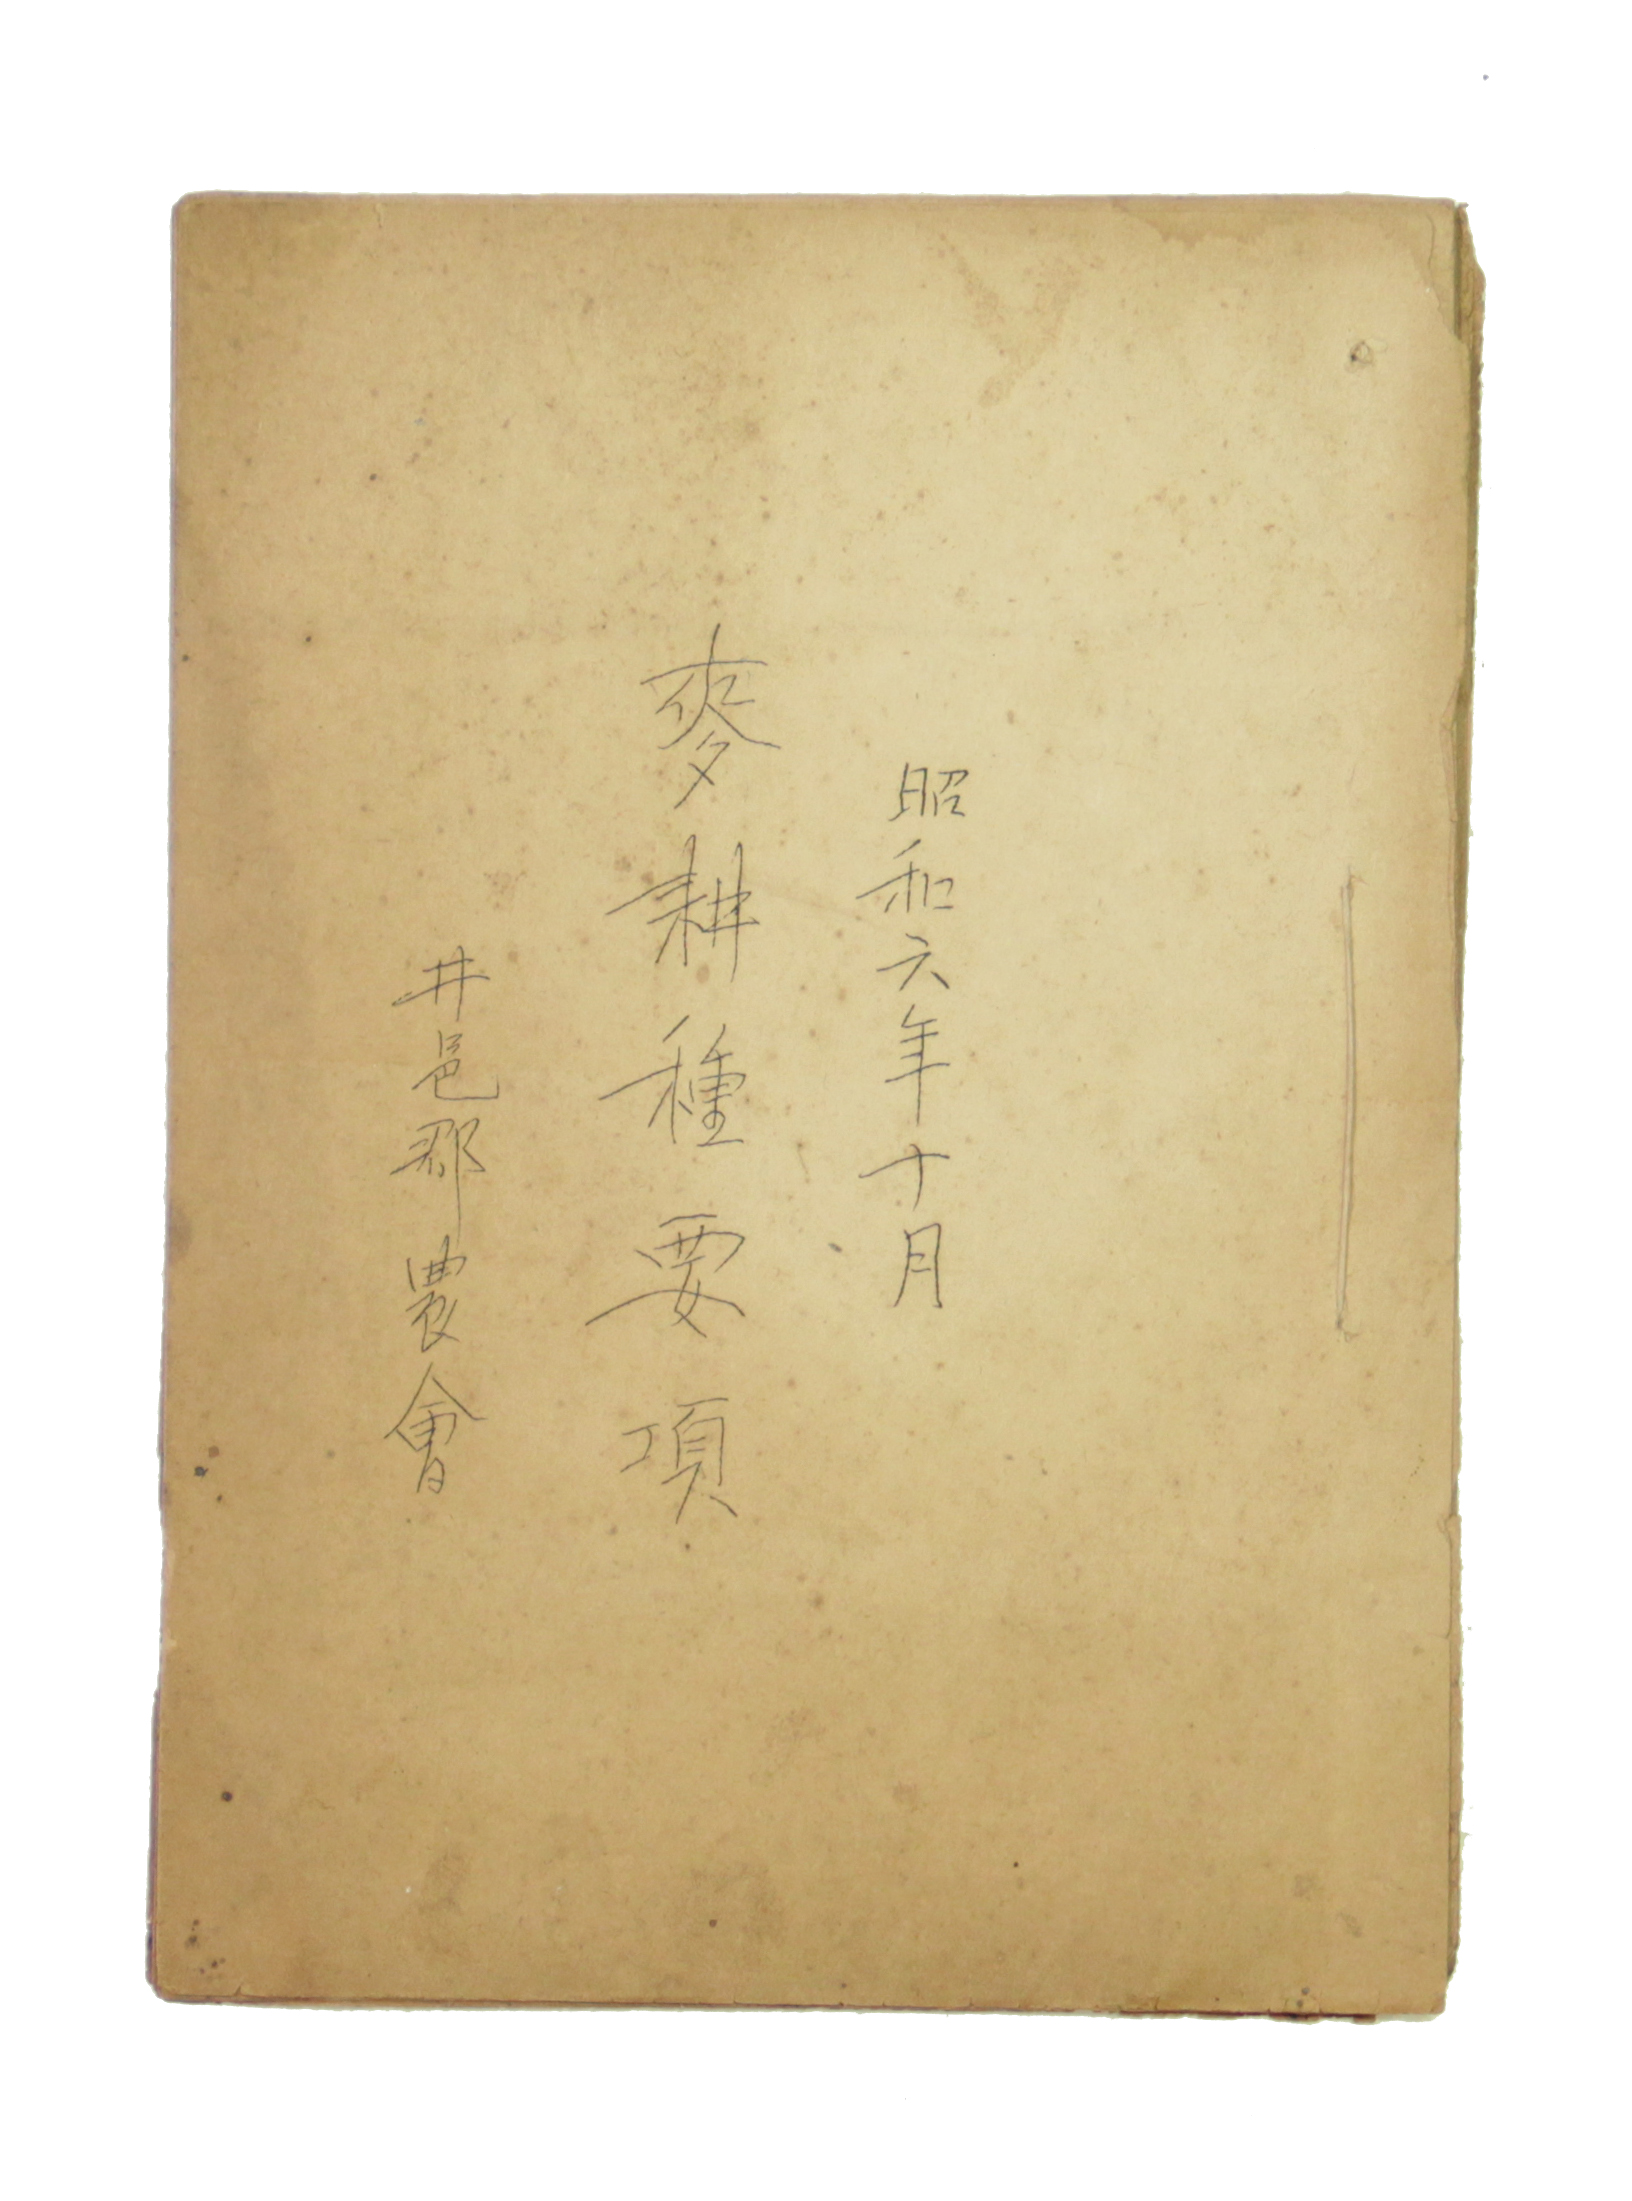 昭和六年十月
麥耕種要項
井邑郡農會